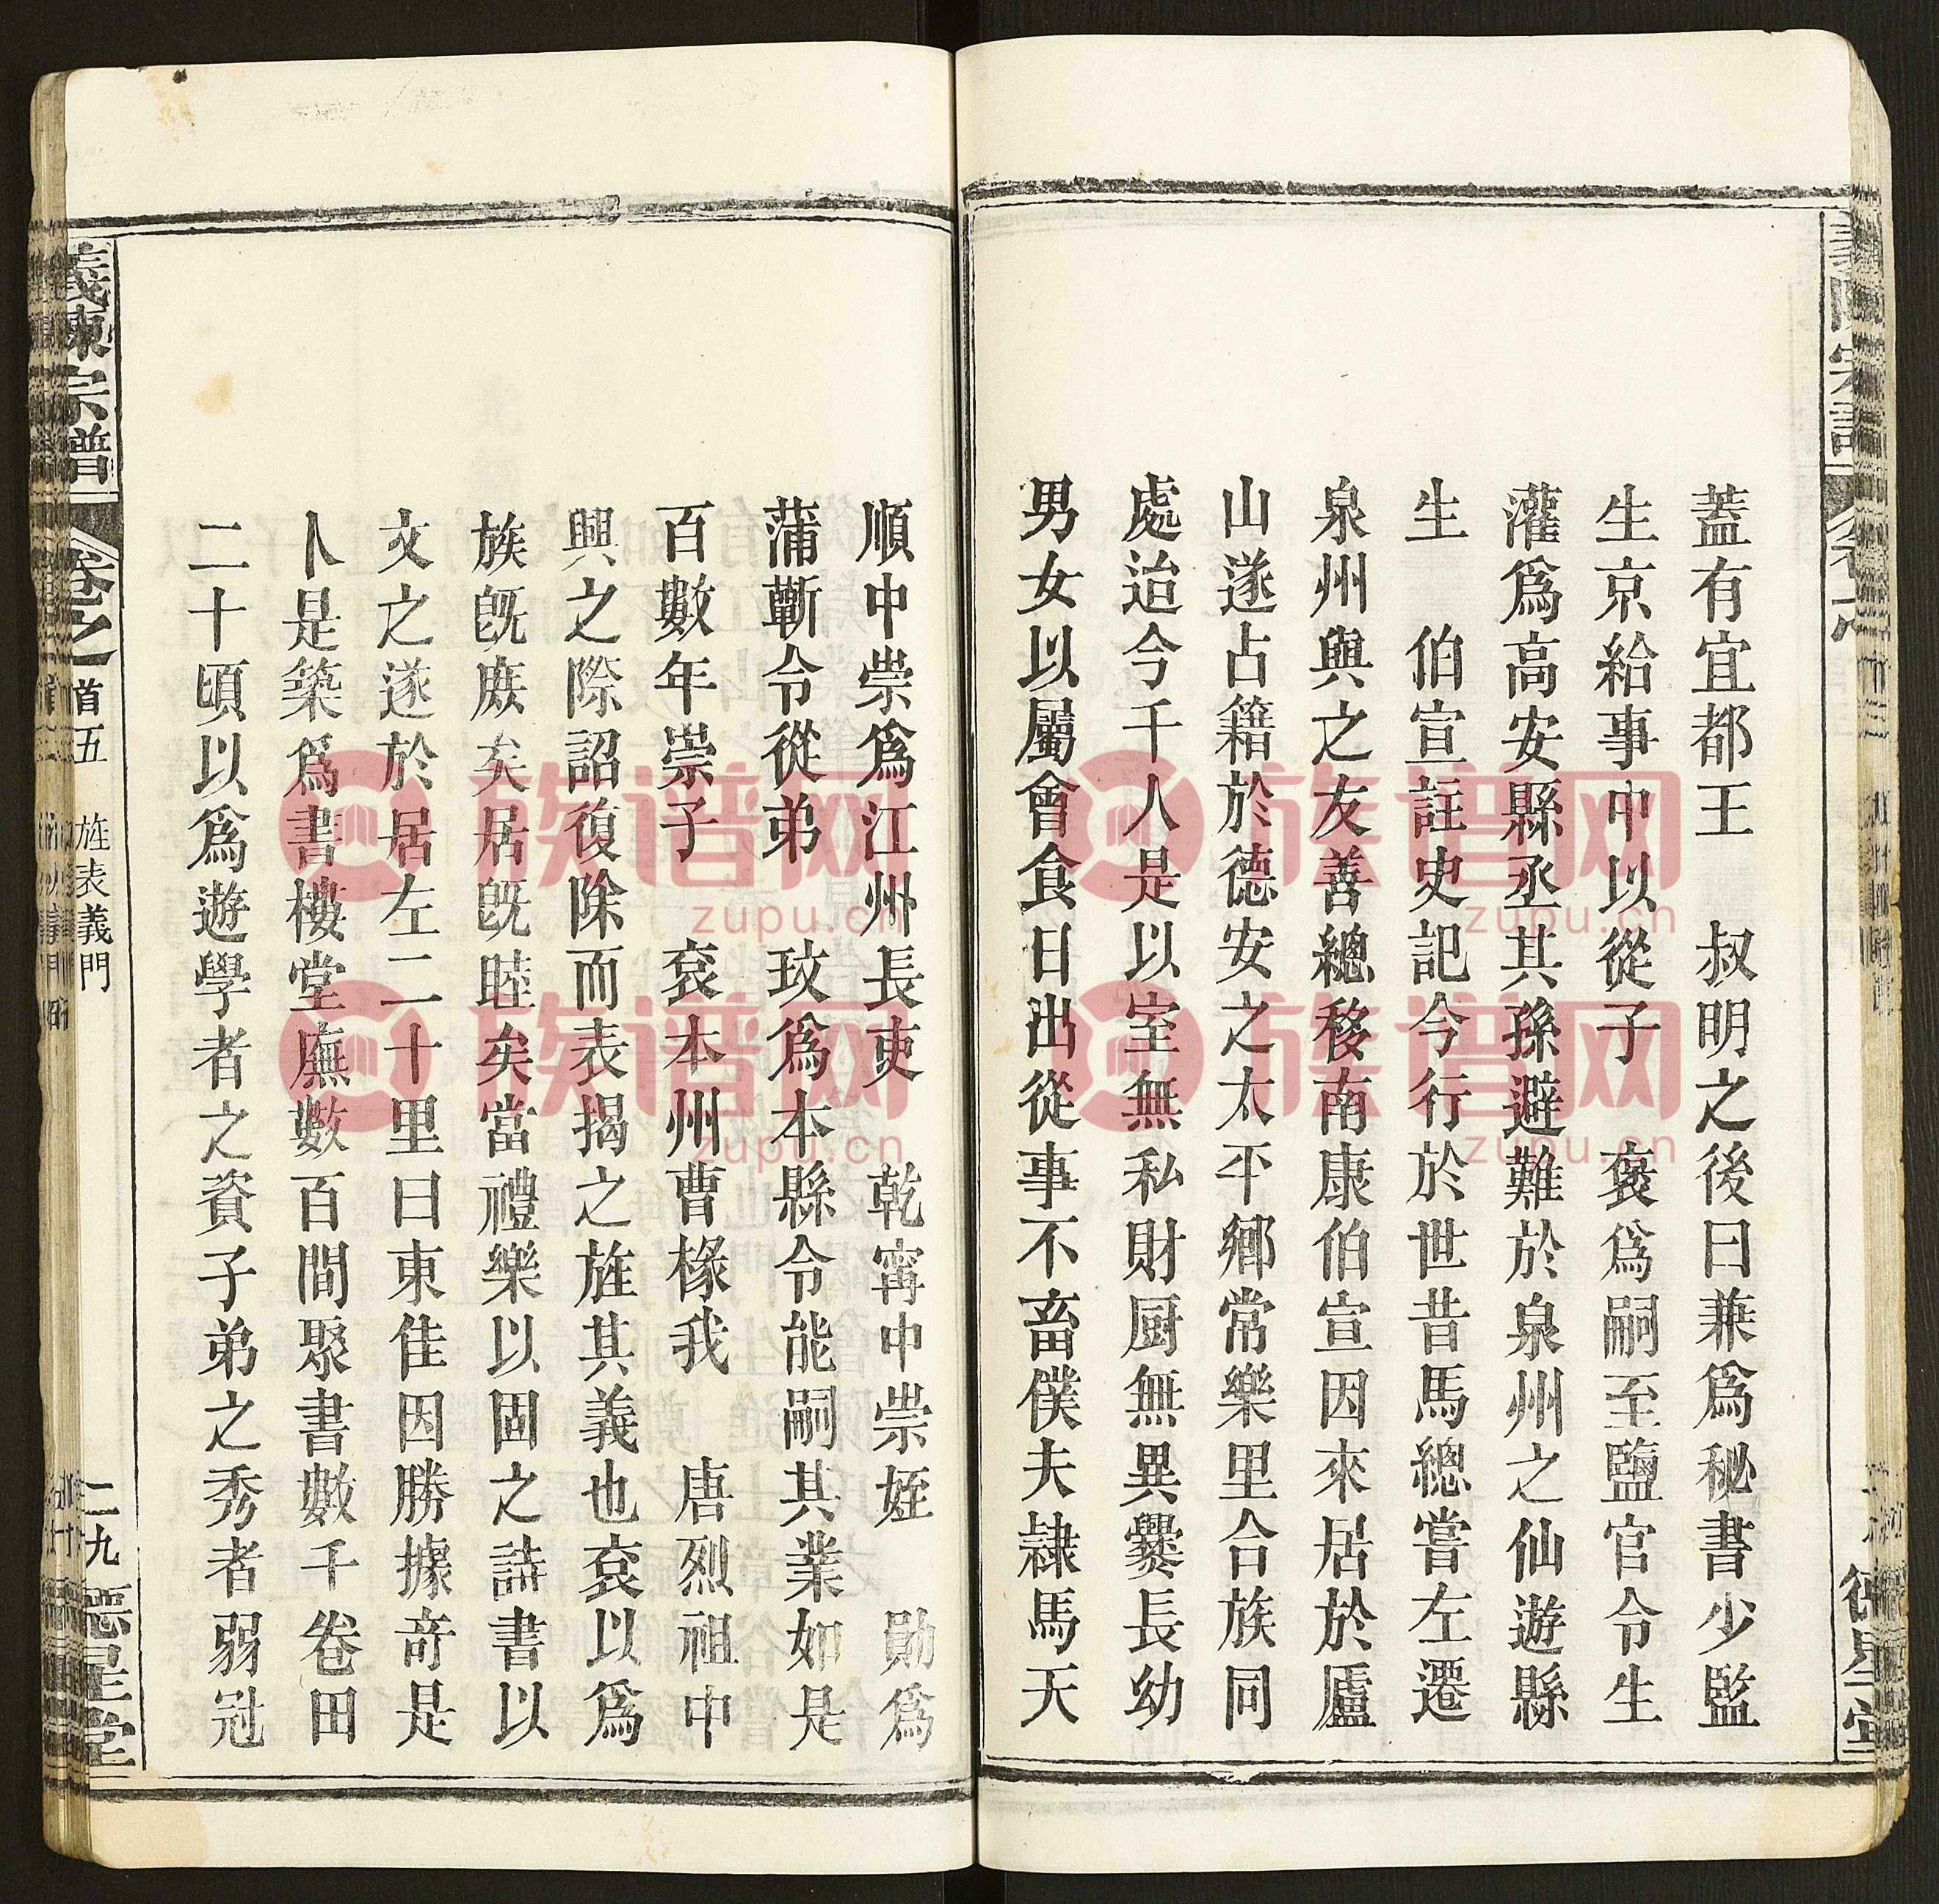 蓋有宜都王　叔明之後曰兼爲秘書少監
生京給事中以從子　褒爲嗣至鹽官令生
灌爲高安縣丞其孫避難於泉州之仙遊縣
生　伯宣註史記今行於世昔馬總嘗左遷
泉州與之友善總移南康伯宣因來居於廬
山遂占籍於德安之太平鄉常樂里合族同
處迨今千人是以室無私財厨無異爨長幼
男女以屬會食日出從事不畜僕夫隸馬天
順中崇爲江州長吏　乾寗中崇姪　勛爲
蒲蘄令從弟　玫爲本縣令能嗣其業如是
百數年崇子　袞本州曹椽我　唐烈祖中
興之際詔復除而表揭之旌其義也袞以爲
族旣庶矣居旣睦矣當禮樂以固之詩書以
文之遂於居左二十里曰東佳因勝據奇是
卜是築爲書樓堂廡數百間聚書數千卷田
二十頃以爲遊學者之資子弟之秀者弱冠
義陳宗譜
卷之
首五
旌表義門
二九
德星堂
族谱网
zupu.cn
族谱网
zupu.cn
族谱网
zupu.cn
族谱网
zupu.cn